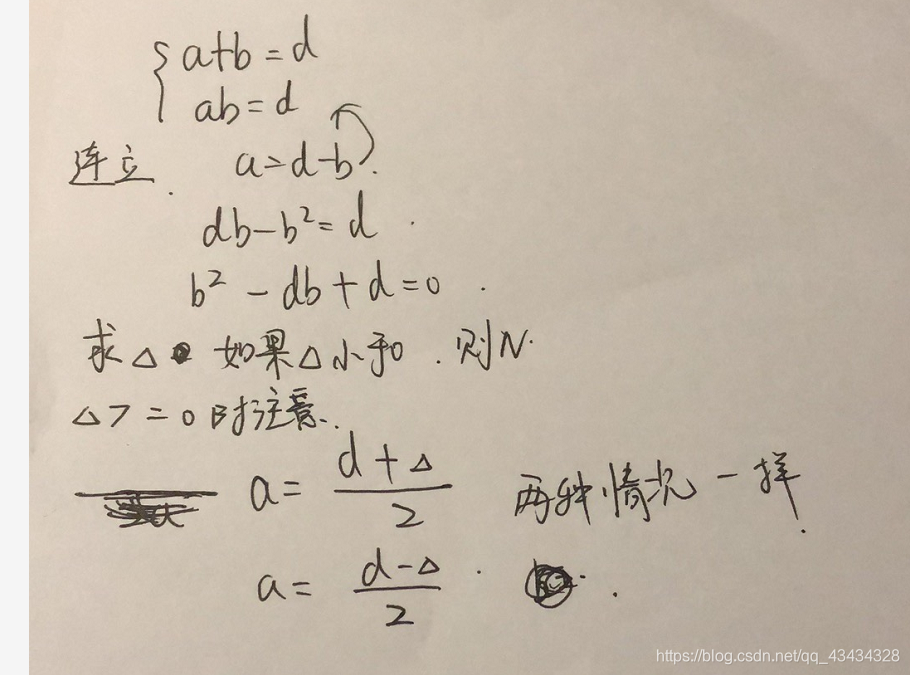 a+b=d
ab=d
连立. a=d-b.
db-b²=d.
b²-db+d=0.
求△ 如果△小于0.则N.
△>=0时注意..
a=\frac{d+△}{2} 两种情况一样.
a=\frac{d-△}{2}.
https://blog.csdn.net/qq_43434328